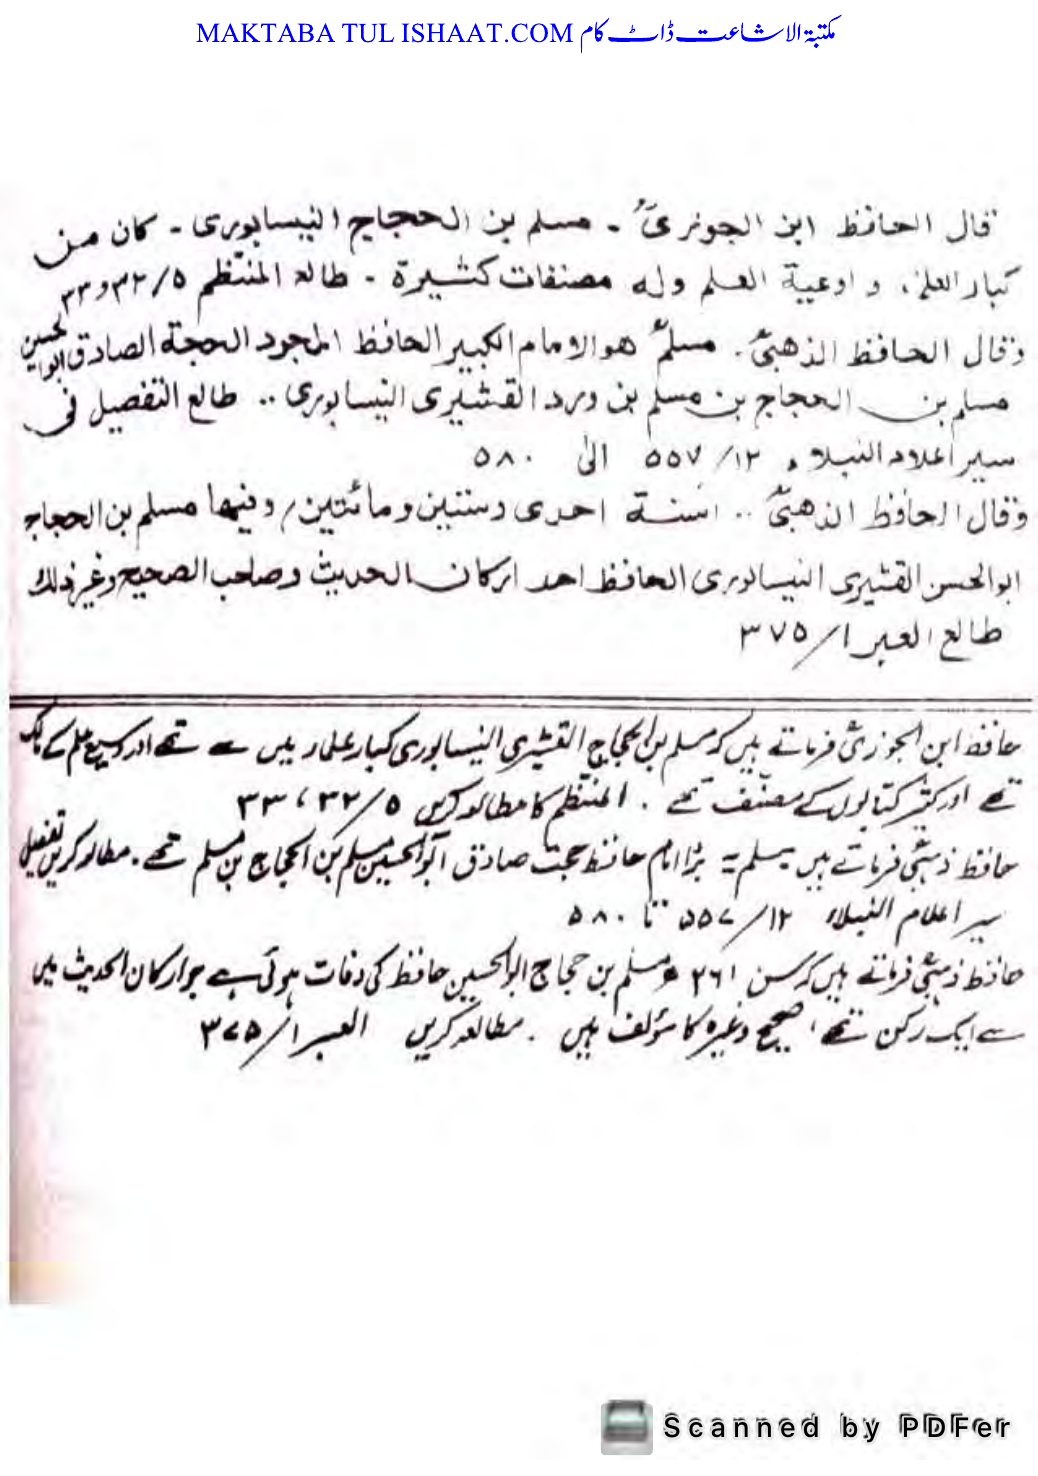 MAKTABA TUL ISHAAT.COM مکتبۃ الاشاعت ڈاٹ کام
قال الحافظ ابن الجوزیؒ ۔ مسلم بن الحجاج النیسابوری ۔ کان من
کبار العلماء و اوعیة العلم وله مصنفات کثیرة ۔ طالع المنتظم ۵/۳۲و۳۳
وقال الحافظ الذھبیؒ ۔ مسلمؒ ھو الامام الکبیر الحافظ المجود الحجة الصادق ابوالحسین
مسلم بن الحجاج بن مسلم بن ورد القشیری النیسابوری .. طالع التفصیل فی
سیر اعلام النبلاء ۱۲/۵۵۷ الیٰ ۵۸۰
وقال الحافظ الذھبیؒ .. سنة احدی وستین ومائتین / وفیھا مسلم بن الحجاج
ابوالحسن القشیری النیسابوری الحافظ احد ارکان الحدیث وصاحب الصحیح وغیر ذلك
طالع العبر ۱/۳۷۵
حافظ ابن الجوزیؒ فرماتے ہیں کہ مسلم بن الحجاج القشیری النیسابوری کبار علماء میں سے تھے اور وسیع علم کے مالک
تھے اور کثیر کتابوں کے مصنف تھے . المنتظم کا مطالعہ کریں ۵/۳۲، ۳۳
حافظ ذہبیؒ فرماتے ہیں مسلم یہ بڑا امام حافظ حجت صادق ابوالحسین مسلم بن الحجاج بن مسلم تھے . مطالعہ کریں تفصیل
سیر اعلام النبلاء ۱۲/۵۵۷ تا ۵۸۰
حافظ ذہبیؒ فرماتے ہیں کہ سن ۲۶۱ ء مسلم بن حجاج ابوالحسین حافظ کی وفات ہوئی ہے جو ارکان الحدیث میں
سے ایک رکن تھے ، صحیح وغیرہ کا مؤلف ہیں . مطالعہ کریں العبر ۱/۳۷۵
Scanned by PDFer